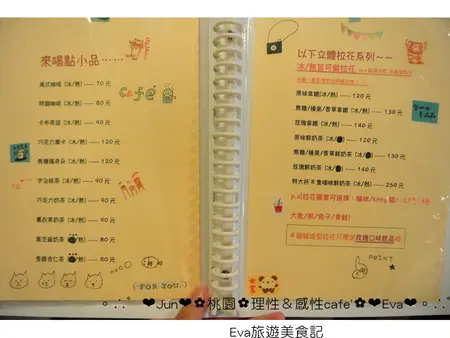 來喝點小品……
美式咖啡 (冰/熱) ---- 70 元
拜鐵咖啡 (冰/熱) ---- 80 元
卡布奇諾 (冰/熱) ---- 90 元
巧克力摩卡 (冰/熱) ---- 120 元
焦糖瑪奇朵 (冰/熱) ---- 120 元
宇治抹茶 (冰/熱) ---- 90 元
巧克力奶茶 (冰/熱) ---- 90 元
薰衣草奶茶 (冰/熱) ---- 90 元
黑芝麻奶茶 ---- 80 元
杏仁茶 ---- 80 元
café
FOR YOU
以下立體拉花系列~~
冰/熱皆可做拉花
原味拿鐵 (冰/熱) ---- 120 元
焦糖/榛果/香草拿鐵 (冰/熱) ---- 130 元
玫瑰拿鐵 (冰/熱) ---- 140 元
原味鮮奶茶 (冰/) ---- 120 元
焦糖/榛果/香草鮮奶茶 (冰/) ---- 130 元
玫瑰鮮奶茶 (冰/) ---- 140 元
特大杯8隻貓咪鮮奶茶 (冰/熱) ---- 250 元
p.s)拉花圖案可選擇：貓咪/kitty 貓/
大象/熊/兔子/青蛙)
POINT
❤Jun❤✿桃園✿理性＆感性cafe'✿❤Eva❤
Eva旅遊美食記